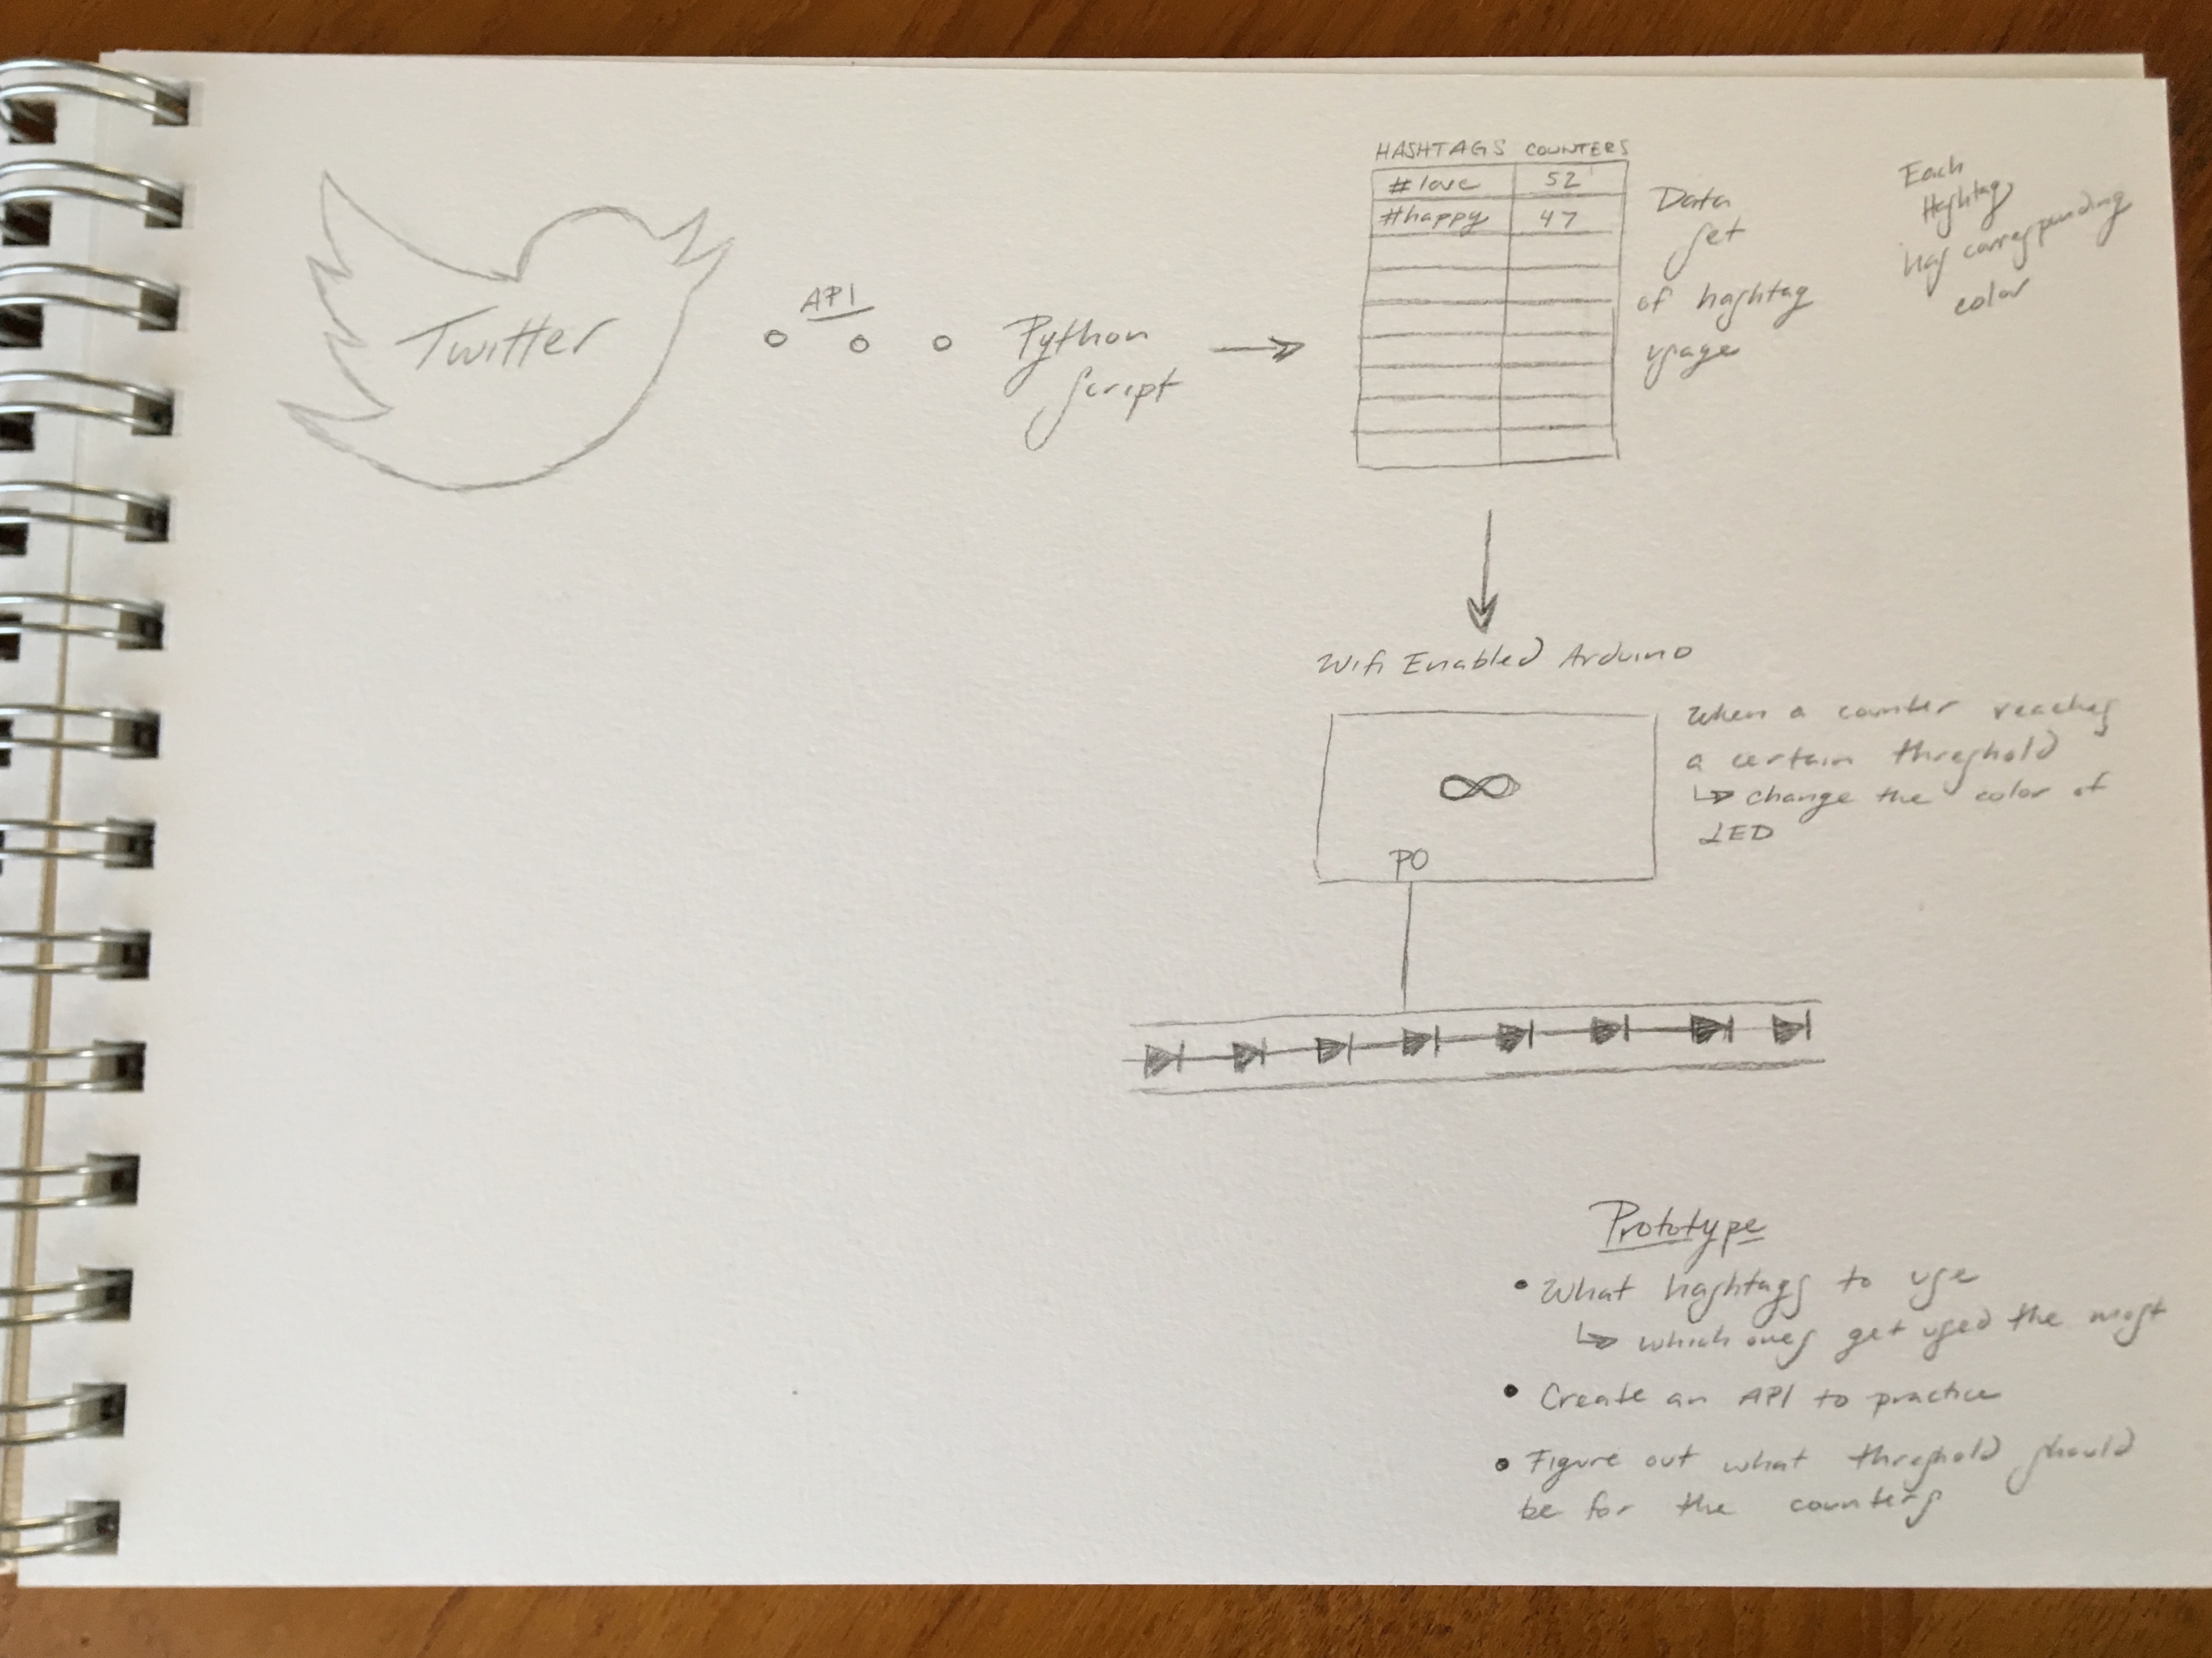 Twitter
API
Python
Script
HASHTAGS COUNTERS
#love 52
#happy 47
Data
set
of hashtag
usage
Each
Hashtag
has corresponding
color
Wifi Enabled Arduino
∞
PO
When a counter reaches
a certain threshold
↳ change the color of
LED
Prototype
• What hashtags to use
↳ which ones get used the most
• Create an API to practice
• Figure out what threshold should
be for the counters